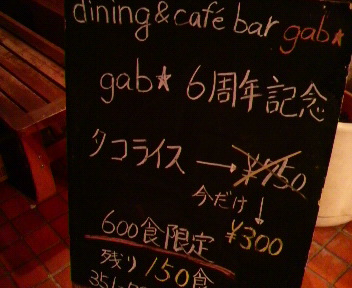 dining&cafe bar gab★
gab★ 6周年記念
タコライス → ¥750
今だけ↓
¥300
600食限定
残り150食